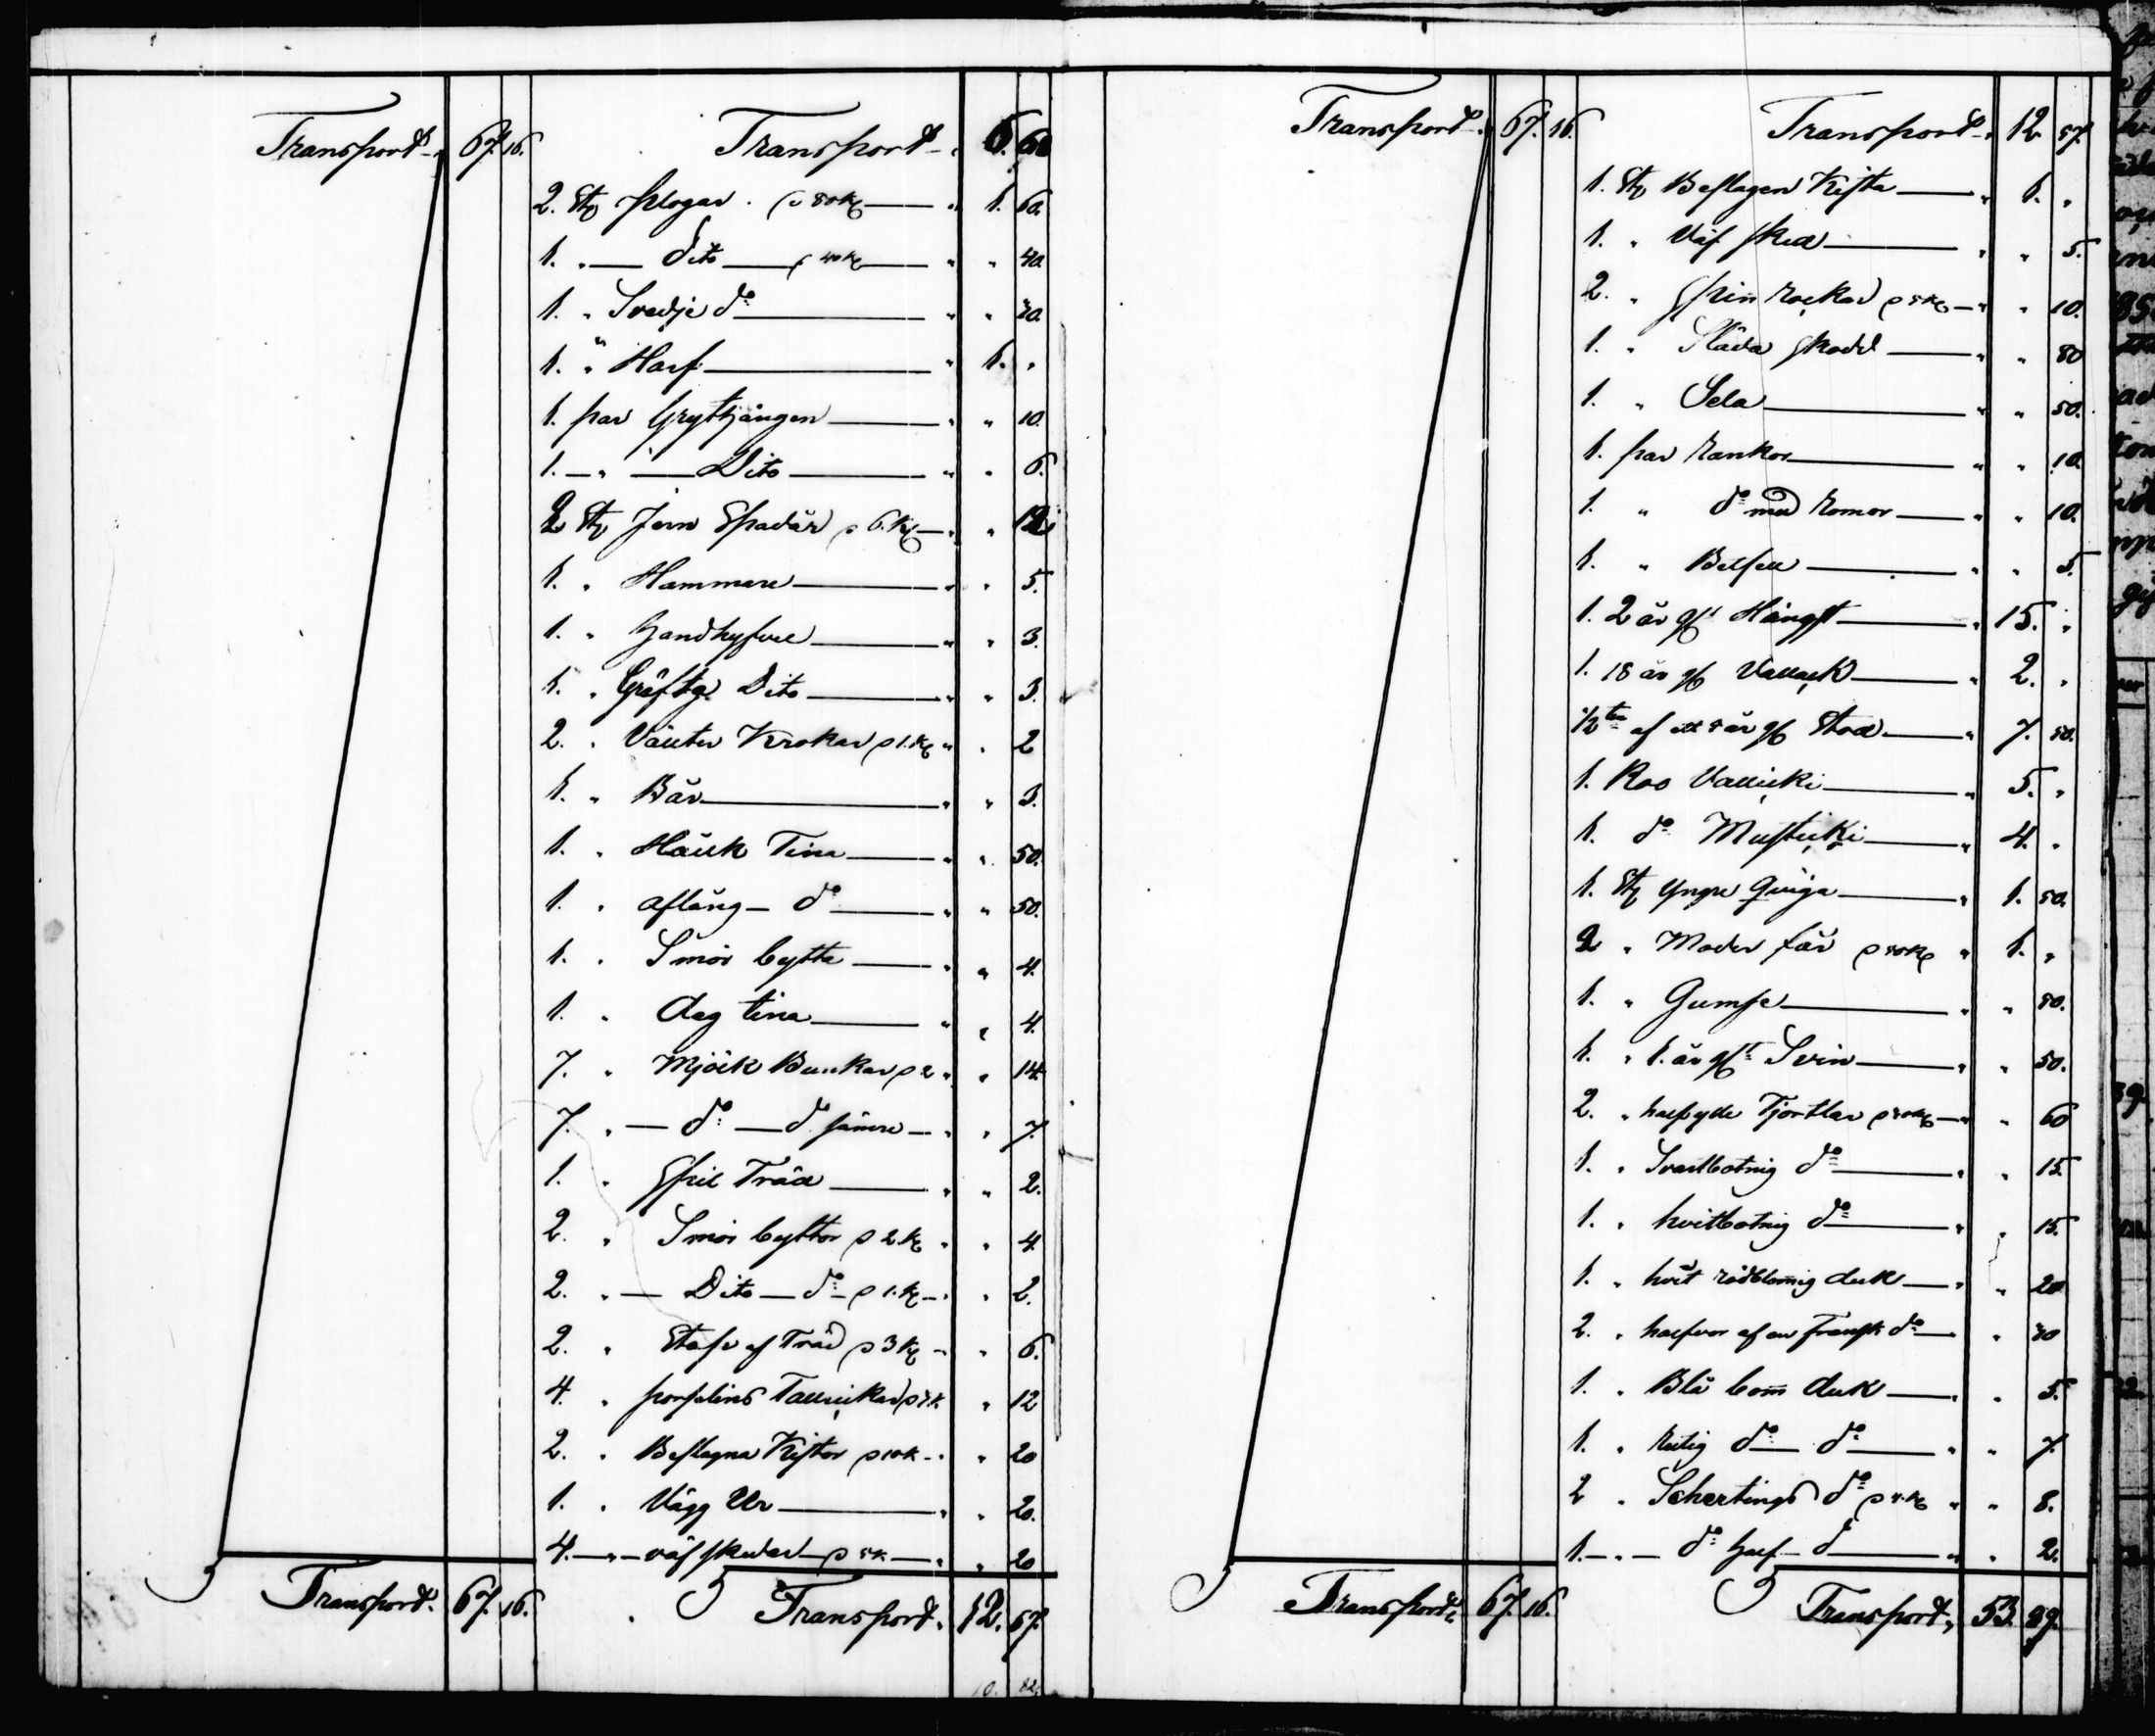 Transport. 67. 16.
Transport. 6. 60
2. St plogar. 80 K 1. 60.
1. " Dito 40 K " 40.
1. " Svedje do " 40.
1. " Harf 1. "
1. par Gryttjängen " 10.
1. " Dito " 6.
2 St Jern Spadar 6. K " 12
1. " Hammare " 5.
1. " Handhyfvel " 3.
1. " Dito " 3.
2. " Krokar 1. K " 2
1. " Bår " 3.
1. " Tina " 50.
1. " aflång do " 50.
1. " Smör bytta " 4.
1. " deg tina " 4.
7. " Mjölk Bunkar 2 " 14.
7. " do do sämre " 7.
1. " Träd " 2.
2. " Smör byttor 2 K " 4.
2. " Dito do 1. K " 2.
2. " af Träd 3 K " 6.
4. " porslins Tallrickar 3 K. " 12
2. " Beslagna Kistor 10 K " 20
1. " Vägg Ur " 20.
4. " väf skedar 5 K. " 20
Transport. 67. 16.
Transport. 12. 57.
Transport. 67. 16.
Transport. 12 57.
1. St Beslagen Kista 1. "
1. " Väf sked " 5.
2. " Spin rockar 5 K " 10.
1. " Släda skodd " 80
1. " Sela " 50.
1. par rankor " 10.
1. " do med romor " 10.
1. " " 5.
1. 2 år gl Hängst 15. "
1. 18 år gl Vallack 2. "
1/2 af ett 8 år gl Stod 7. 50.
1. Koo 5. "
1. do Musticki 4. "
1. St yngre Qviga 1. 50.
2 " Moder får 50 K 1. "
1. " Gumse " 50.
1. " 1. år gl Svin " 50.
2. " Tjortlar 30 K " 60
1. " Svartbotnig do " 15.
1. " hvitbotnig do " 15
1. " hvit rödblomig duk " 20
2. " halfvor af en Fransk do " 40
1. " Blå bom duk " 5.
1. " rutig do do " 7.
2 " Schertings do 4. K " 8.
1. " do half do " 2.
Transport. 67. 16.
Transport. 53. 89.